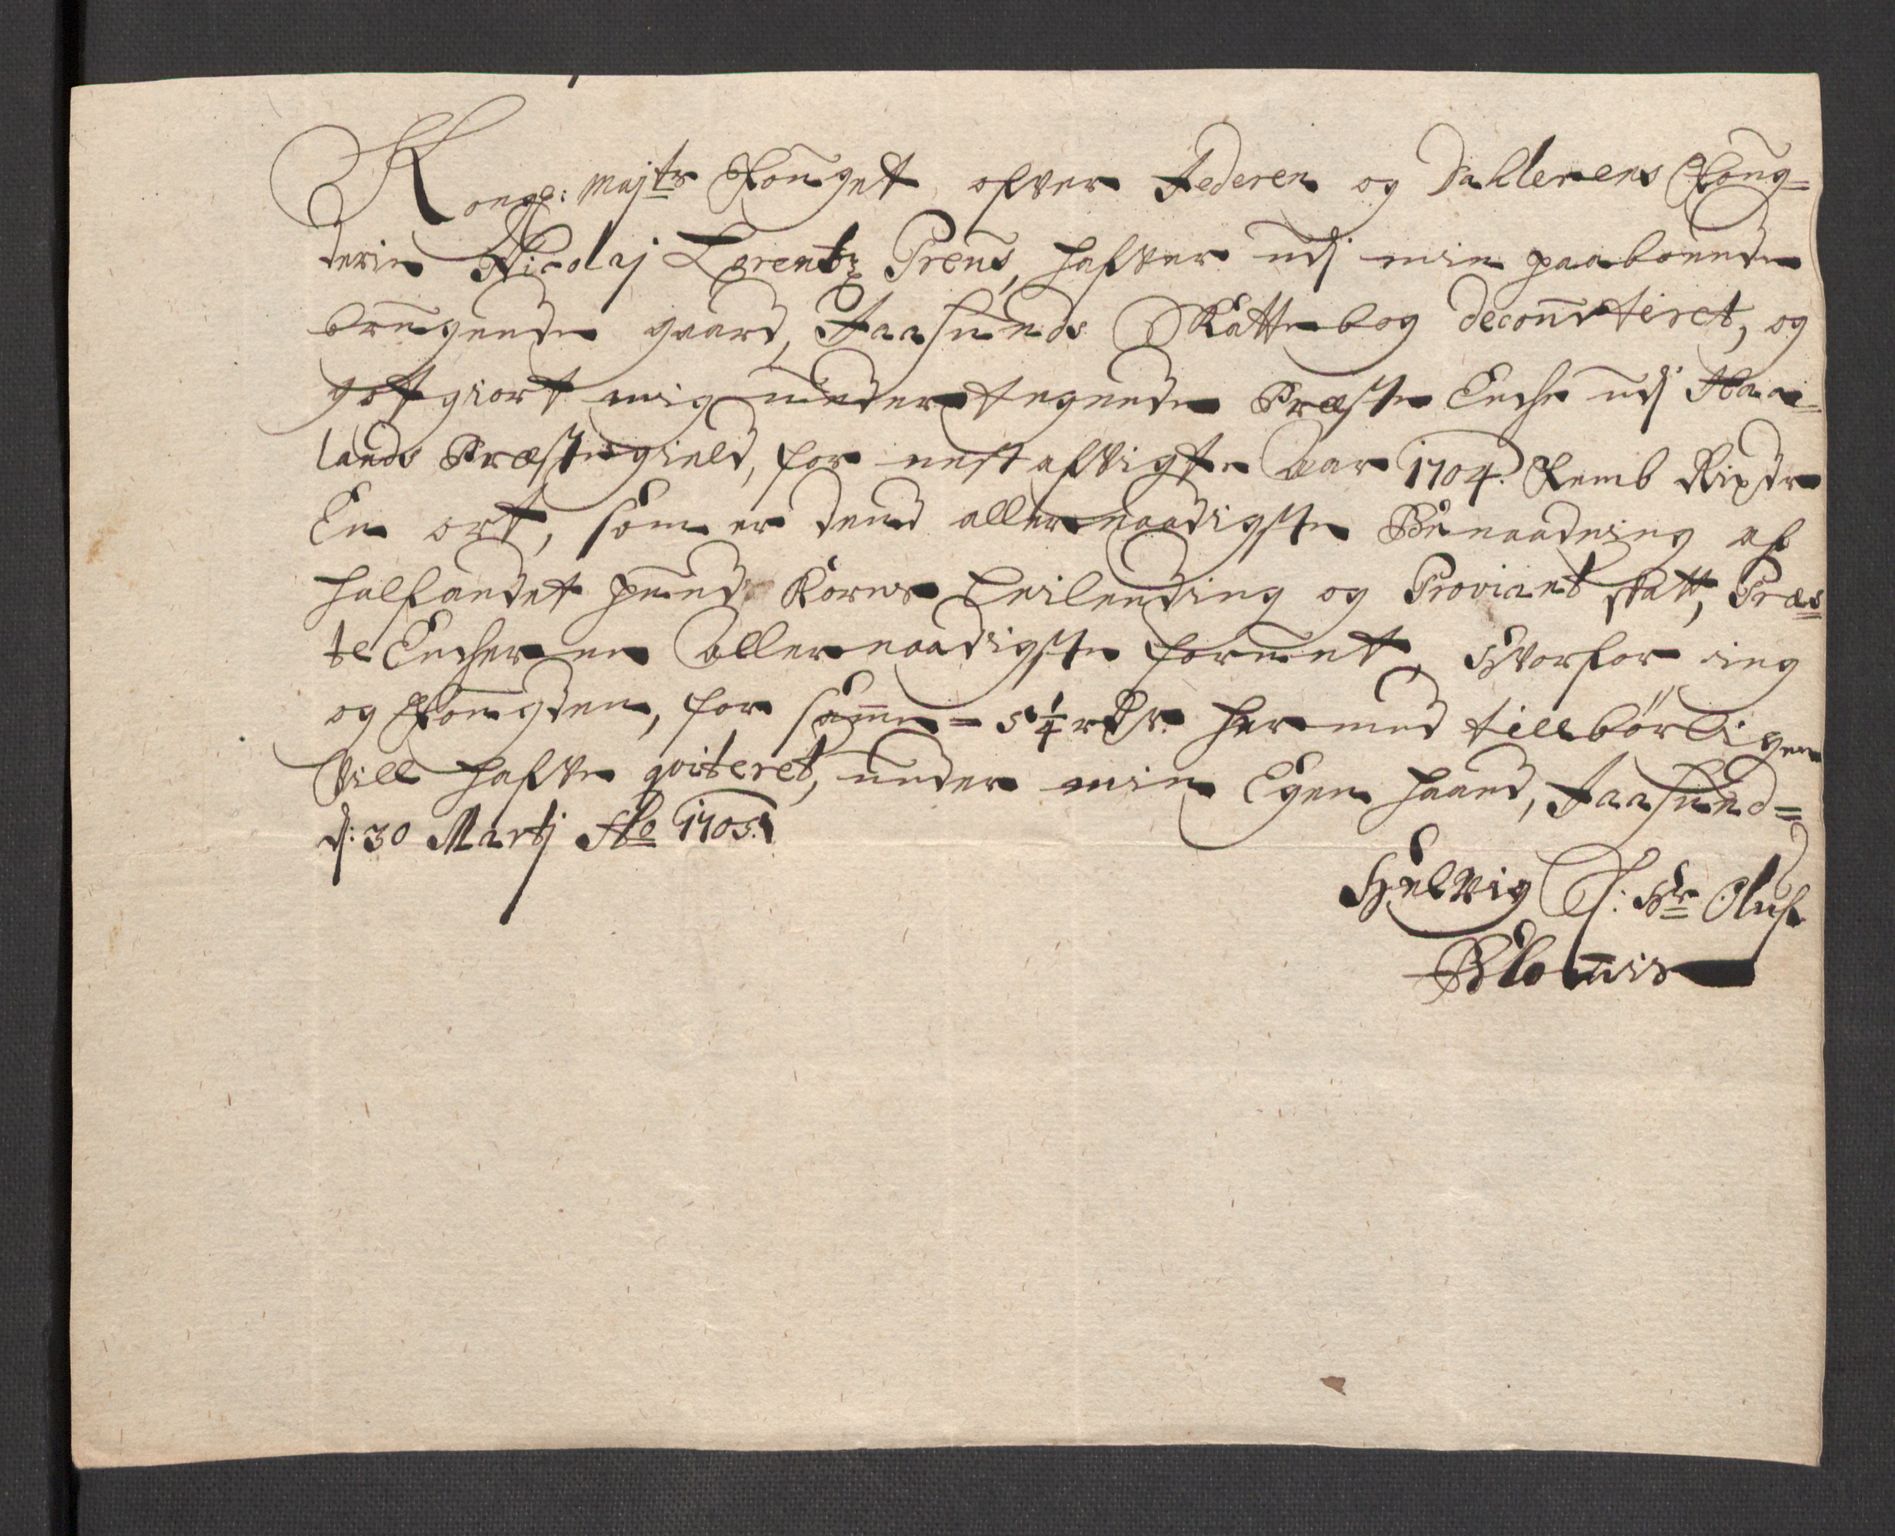 Kongl: Majtz Fouget ofver Jederen og Dahlerens Foug=
derie Nicolaj Lorentz Preus, hafver udj min paaboende
brugende gaard, Taasunds Skattebog decourteret, og
gotgiort mig undertegnede Præste Enche udj Haa=
lands Præstegield, for nest afvigte Aar 1704. Femb Rixdr
En ort, som er dend allernaadigste Benaadning af
halfandet pund Korns Leilending og Proviant skatt, Præs=
te Encher er allernaadigste forundt, Hvorfor ieg
og Fougden, for samme = 5 1/4 rdr. hermed tillbørligen
vill hafve qviteret, under min Egen haand, Taasund=
d: 30 Martj Ao 1705.
Helvig S: Hr Oluf
Blouvis